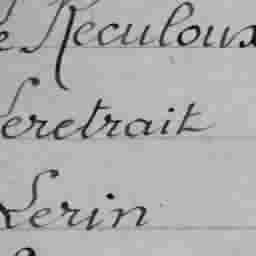 e Reculoux
Leretrait
Lerin